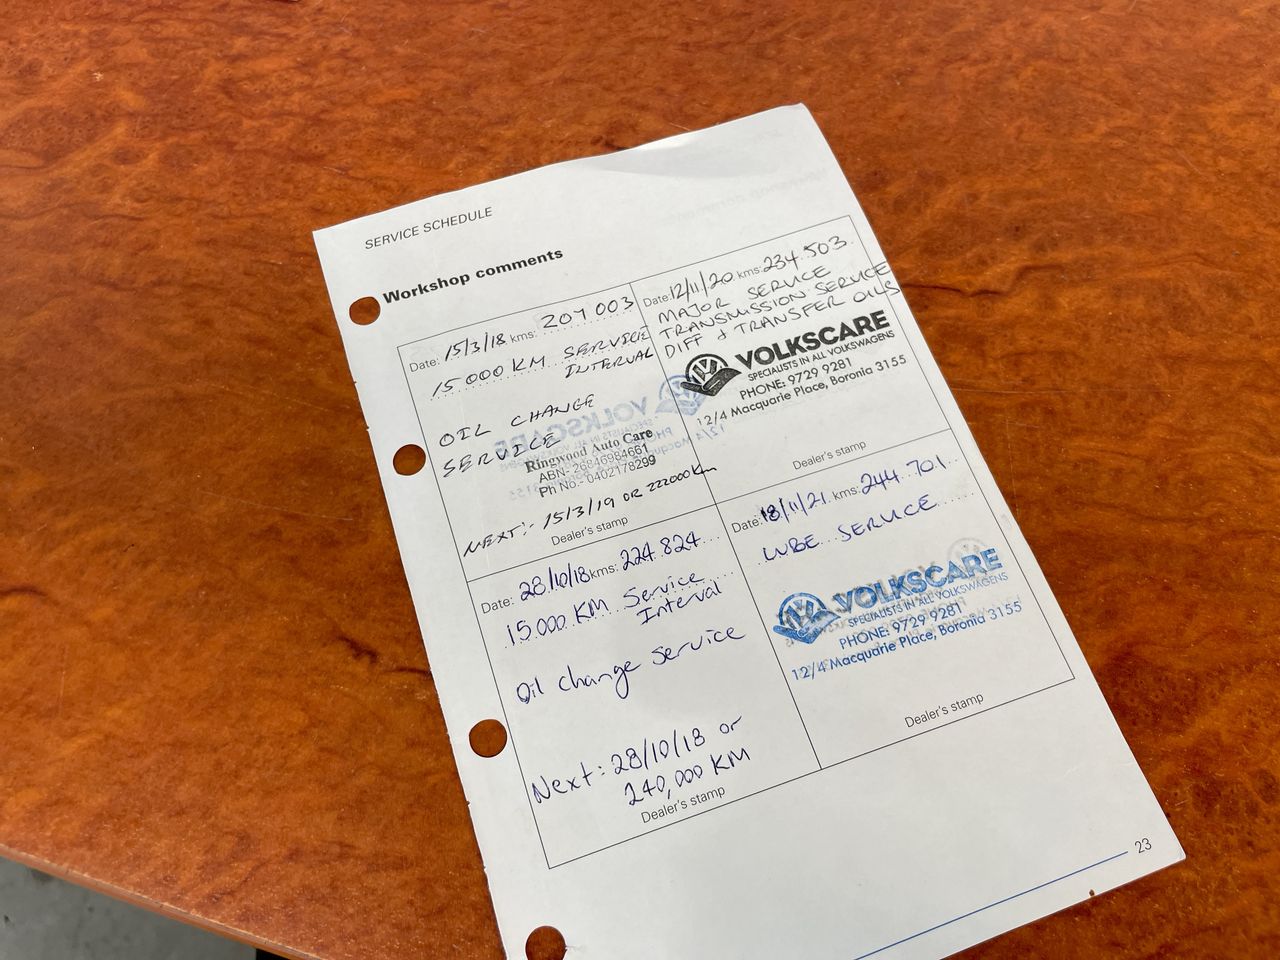 SERVICE SCHEDULE
Workshop comments
Date: 15/3/18 kms: 207 003
15.000 KM SERVICE
INTERVAL
OIL CHANGE
SERVICE
Ringwood Auto Care
ABN- 26846984661
Ph No.- 0402178299
NEXT:- 15/3/19 OR 222000 Km
Dealer's stamp
Date: 12/11/20 kms: 234.503
MAJOR SERVICE
TRANSMISSION SERVICE
DIFF + TRANSFER OILS
VOLKSCARE
SPECIALISTS IN ALL VOLKSWAGENS
PHONE: 9729 9281
12/4 Macquarie Place, Boronia 3155
Dealer's stamp
Date: 28/10/18 kms: 224.824
15.000 KM Service
Interval
Oil change service
Next: 28/10/18 or
240,000 KM
Dealer's stamp
Date: 18/11/21 kms: 244.701
LUBE SERVICE
VOLKSCARE
SPECIALISTS IN ALL VOLKSWAGENS
PHONE: 9729 9281
12/4 Macquarie Place, Boronia 3155
Dealer's stamp
23